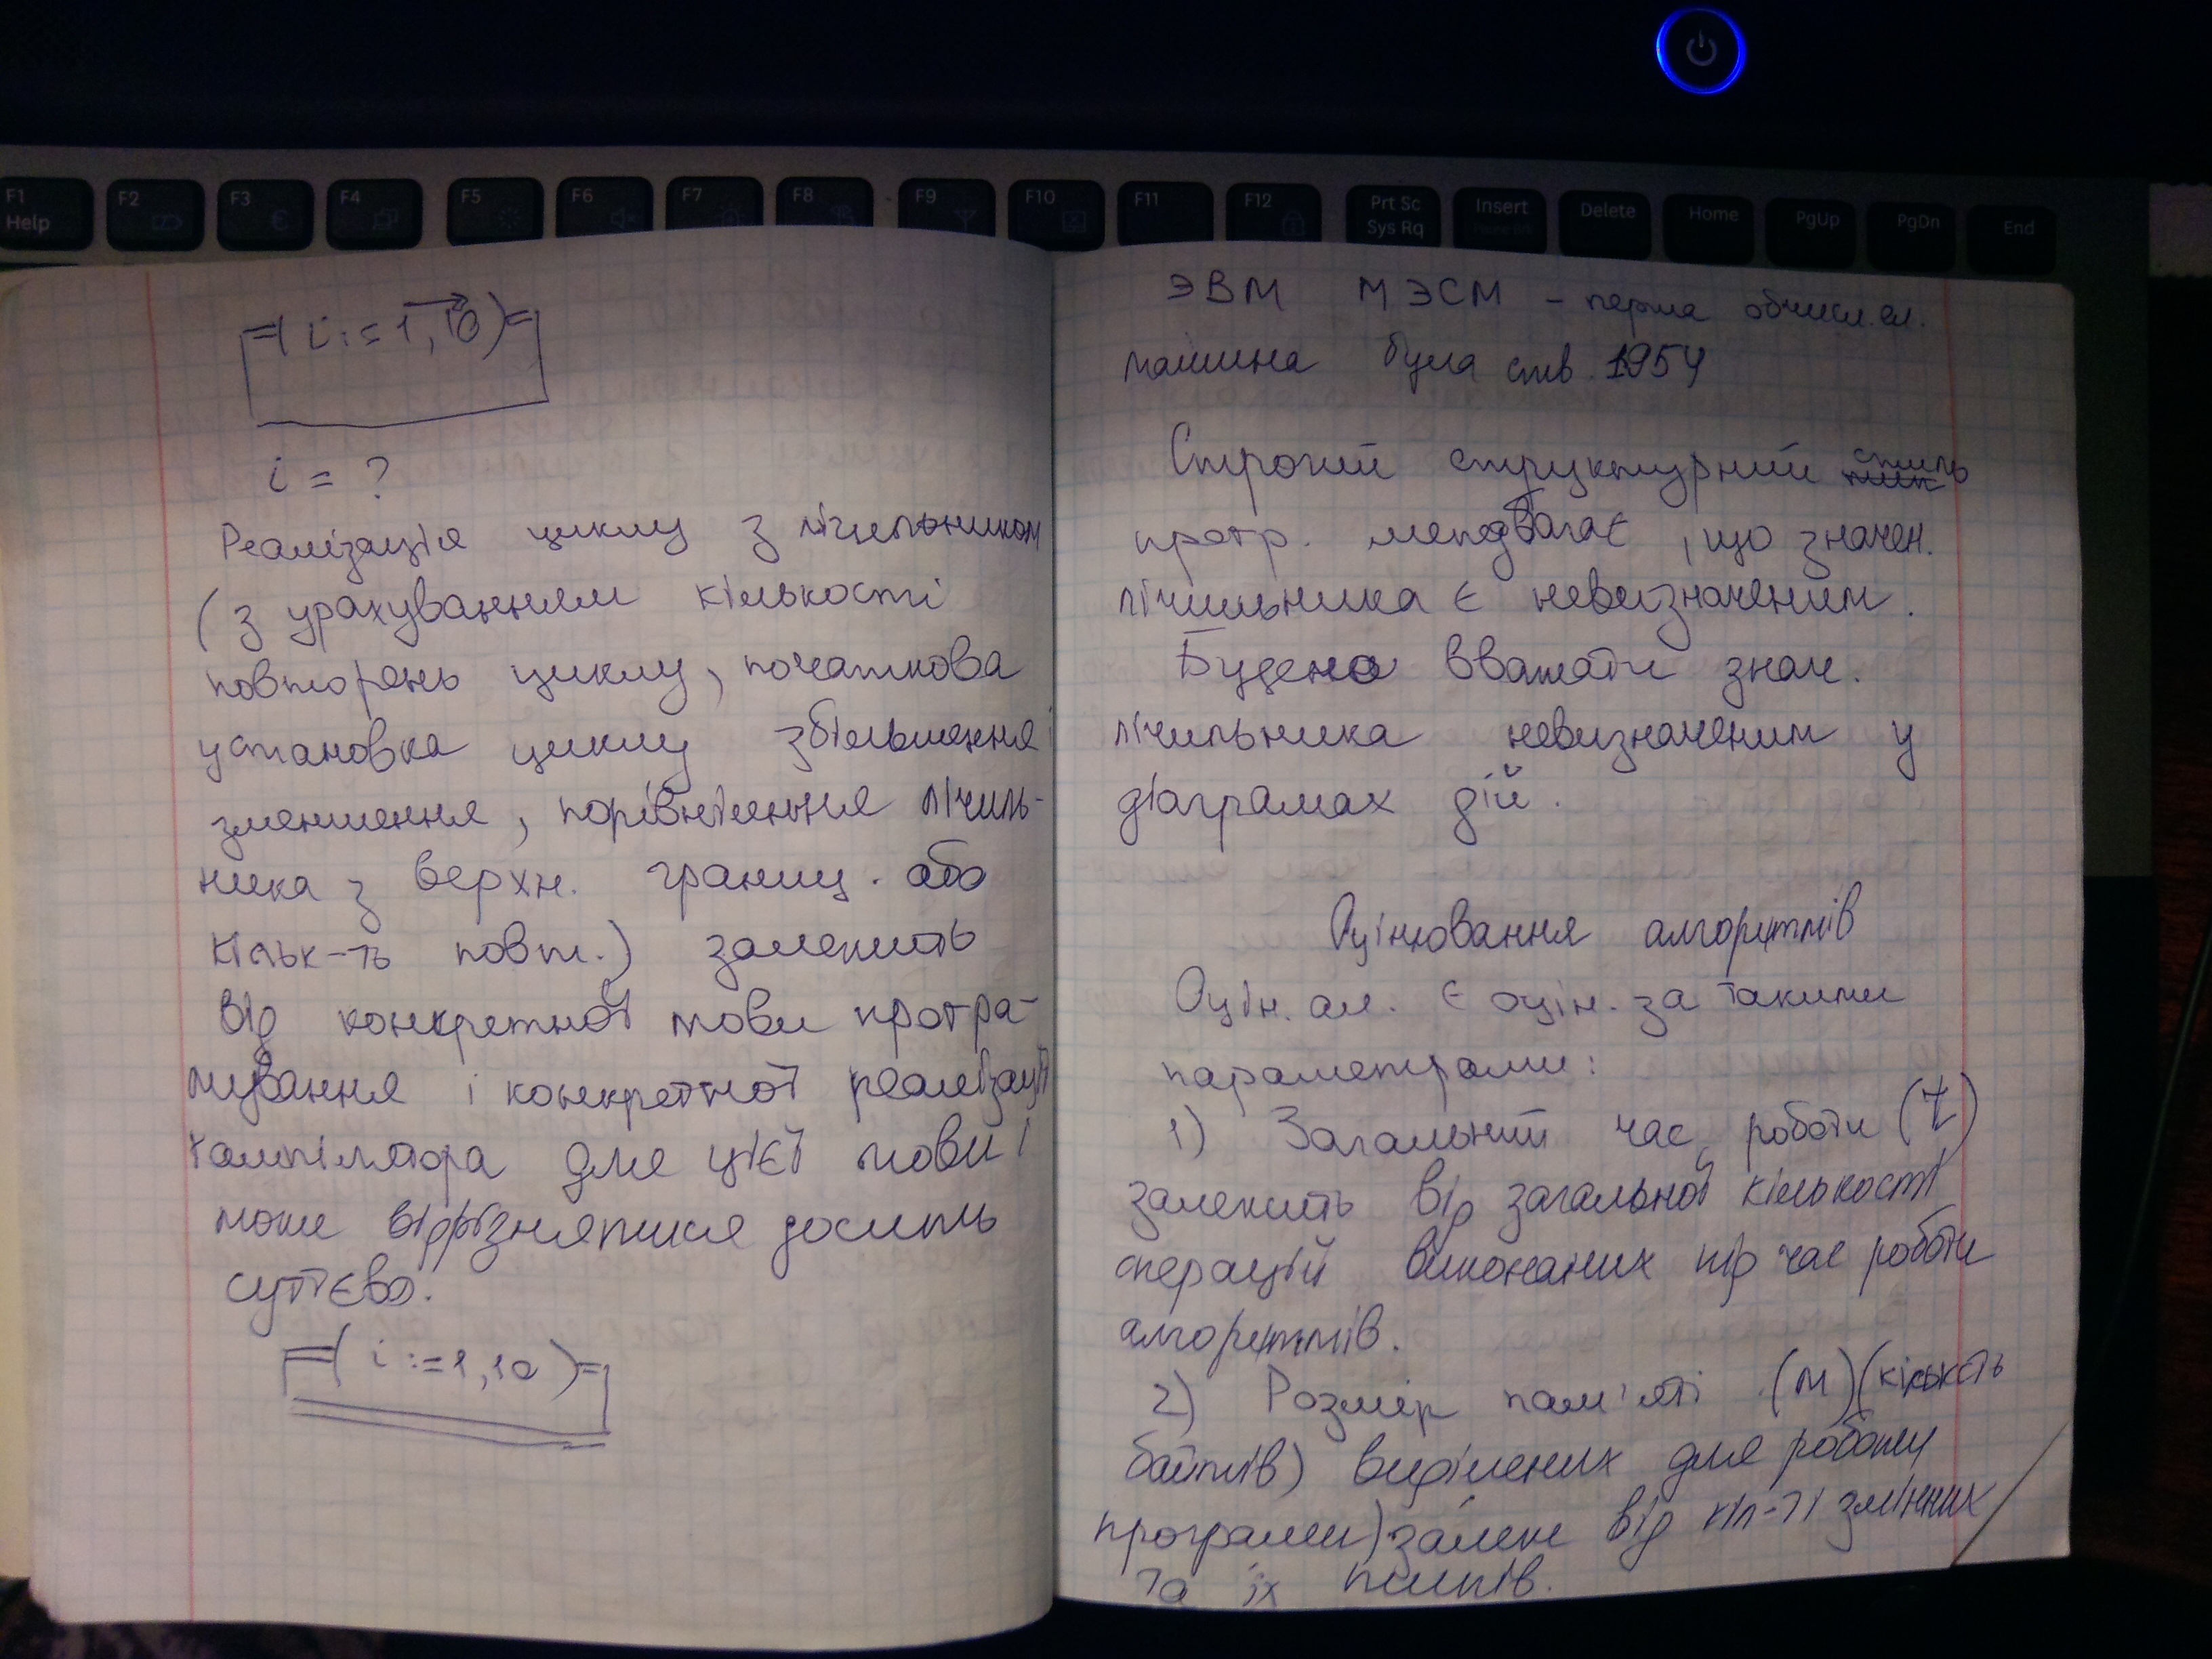 F1 Help F2 F3 F4 F5 F6 F7 F8 F9 F10 F11 F12 Prt Sc Sys Rq Insert Delete Home PgUp PgDn End
=( i := 1, 10 )=
i = ?
Реалізація циклу з лічильником
( з урахуванням кількості
повторень циклу, початкова
установка циклу збільшення
зменшення, порівняння лічиль-
ника з верхн. границ. або
кільк-ть повт.) залежить
від конкретної мови програ-
мування і конкретної реалізації
компілятора для цієї мови і
може відрізнятися досить
суттєво.
=( i := 1, 10 )=
ЭВМ МЭСМ - перша обчисл. ел.
машина була ств. 1954
Строгий структурний стиль
прогр. , що значен.
лічильника є невизначеним.
Будемо вважати знач.
лічильника невизначеним у
діаграмах дій.
Оцінювання алгоритмів
Оцін. ал. є оцін. за такими
параметрами:
1) Загальний час роботи (t)
залежить від загальної кількості
операцій виконаних під час роботи
алгоритмів.
2) Розмір пам'яті (M) (кількість
байтів) виділених для роботи
програми) залеж від кіл-ті змінних
та їх типів.